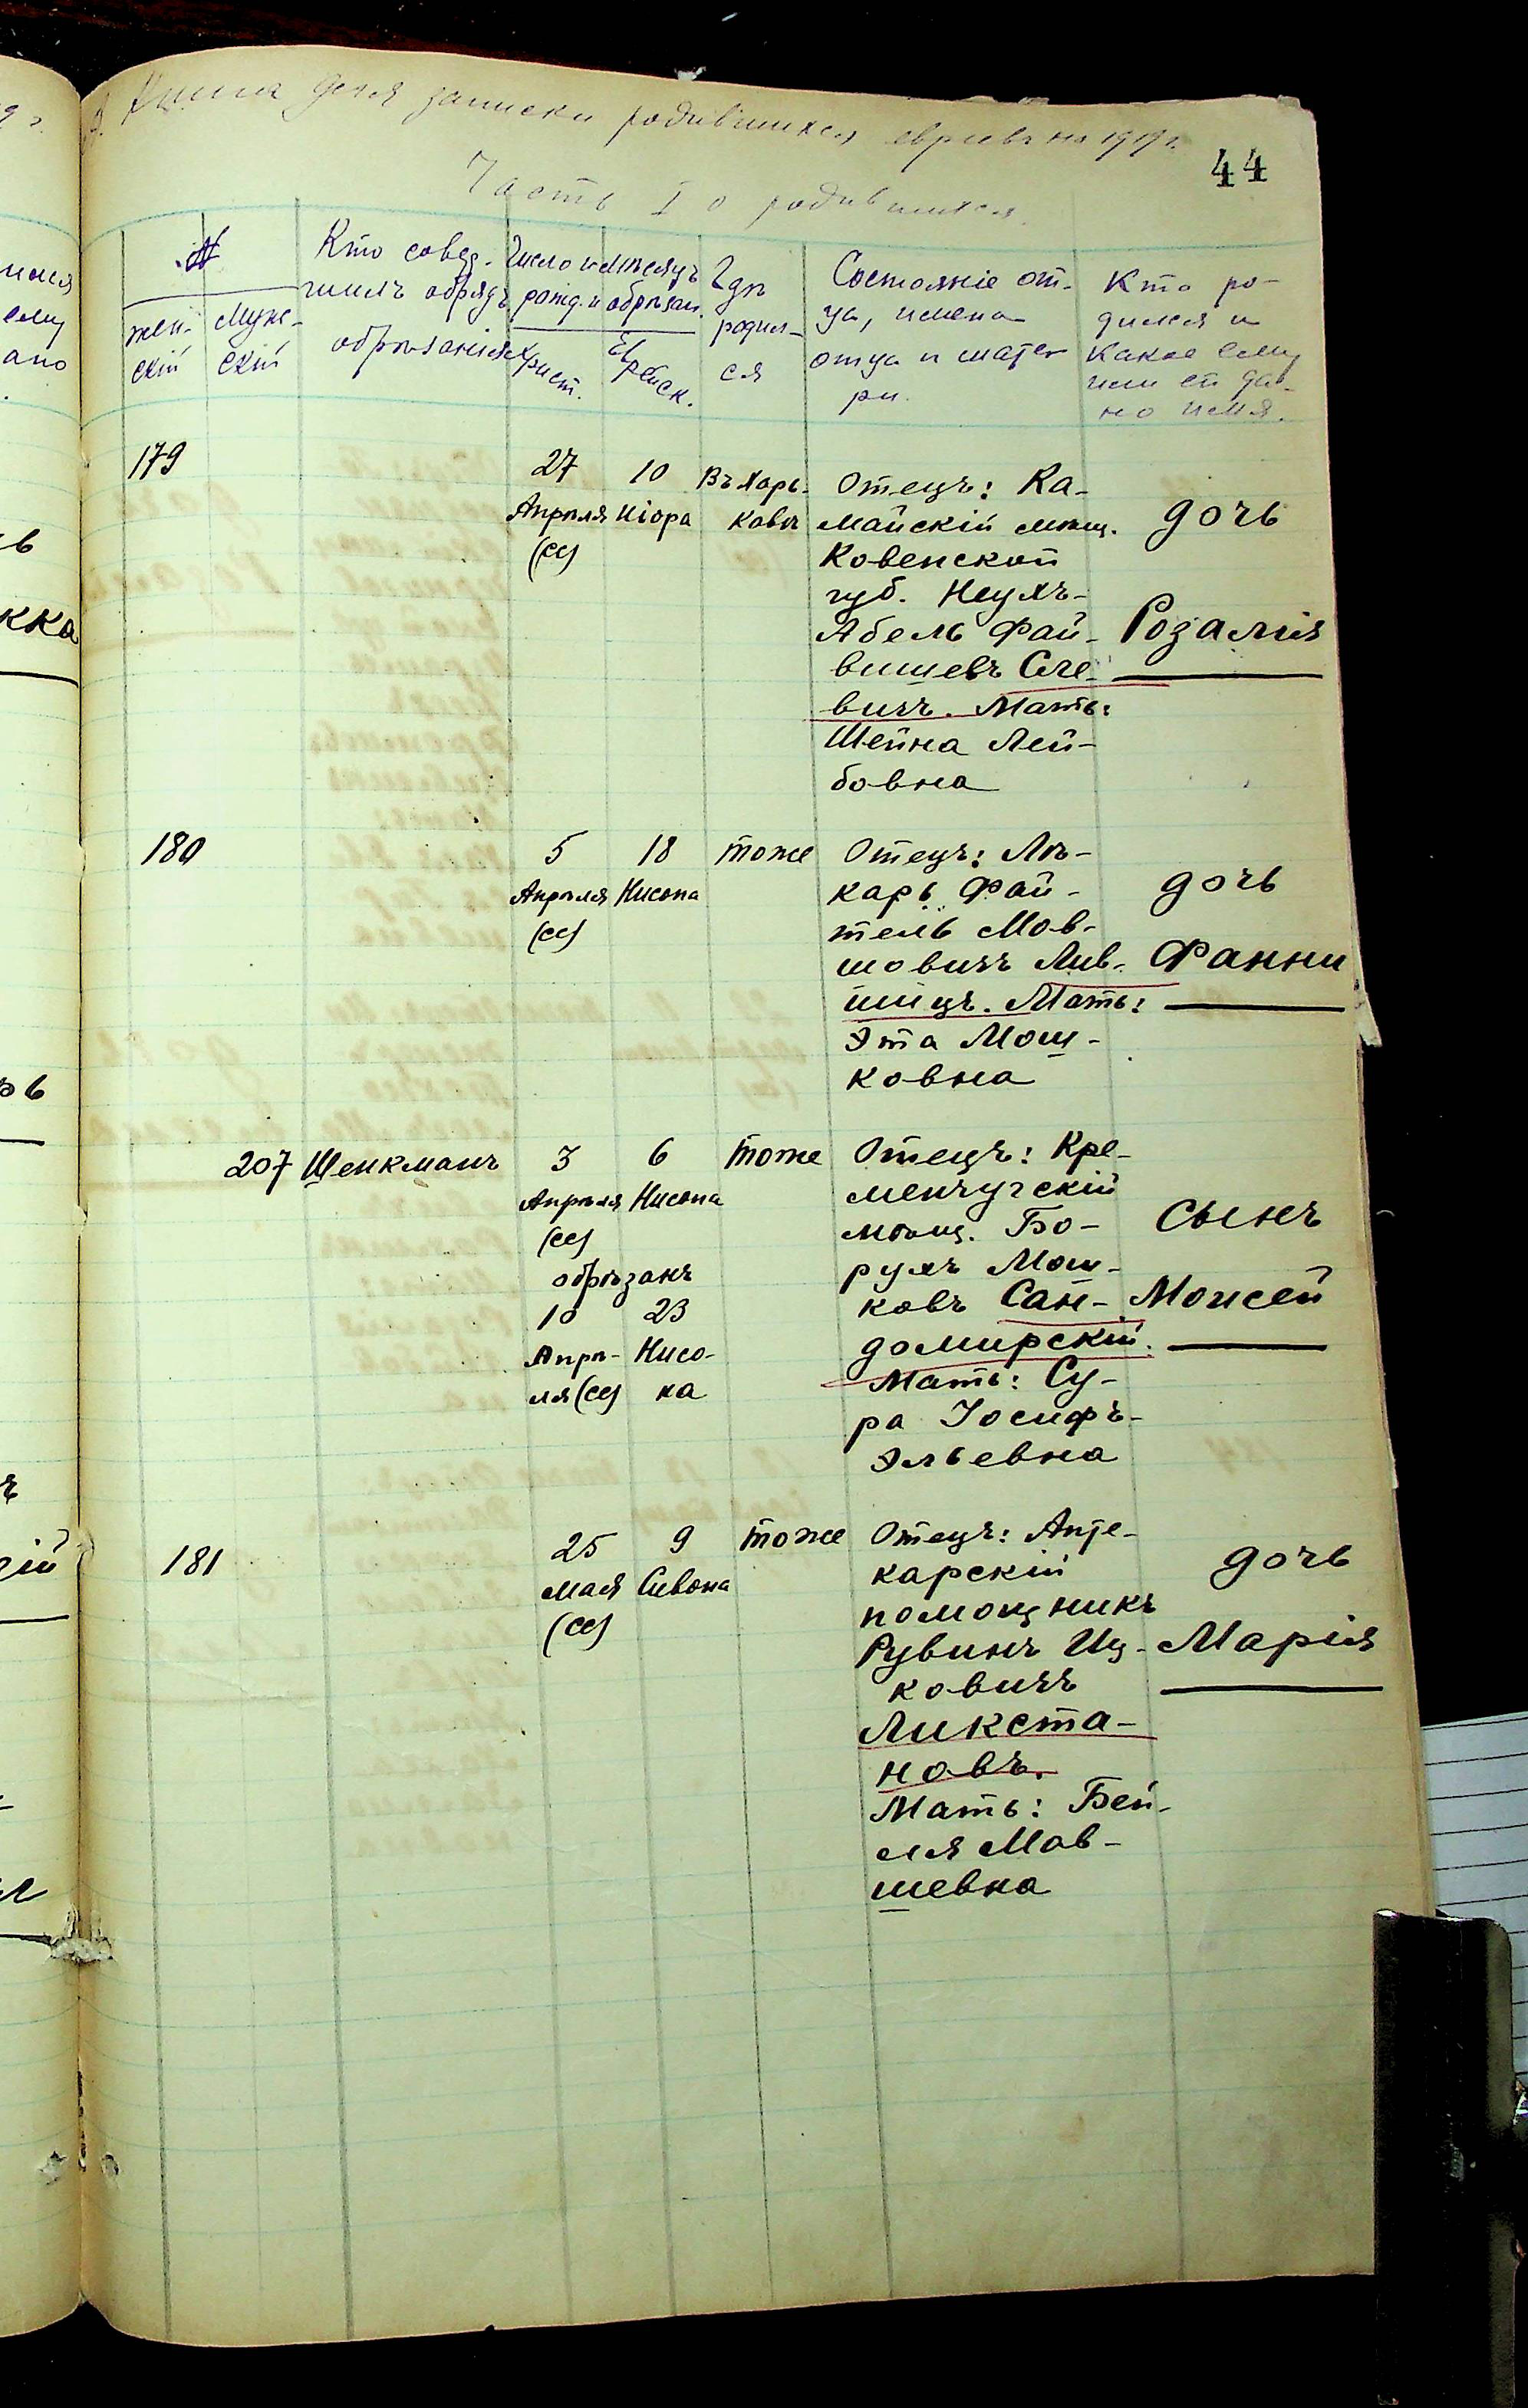 Книга для записки родившихся евреевъ на 1919 г.
44
Часть I о родившихся.
№
Жен-
скій
Муж-
скій
Кто совер-
шилъ обрядъ
обрѣзанія
Число и мѣсяцъ
рожд. и обрѣзан.
Христ.
Еврейск.
Гдѣ
родил-
ся
Состояніе от-
ца, имена
отца и мате-
ри.
Кто ро-
дился и
какое ему
или ей да-
но имя.
179
27
Апрѣля
(сс)
10
Ніора
Въ Харь-
ковѣ
Отецъ: Ка-
майскій мѣщ.
Ковенской
губ. Неухъ-
Абель Фай-
вишевъ Сле-
вичъ. Мать:
Шейна Лей-
бовна
дочь
Розалія
180
5
Апрѣля
(сс)
18
Нисона
тоже
Отецъ: Лѣ-
карь Фай-
тель Мов-
шовичъ Лив-
шицъ. Мать:
Эта Мош-
ковна
дочь
Фанни
207
Шенкманъ
3
Апрѣля
(сс)
6
Нисона
обрѣзанъ
10
Апрѣ-
ля (сс)
23
Нисо-
на
тоже
Отецъ: Кре-
менчугскій
мѣщ. Бо-
рухъ Мош-
ковъ Сан-
домирскій.
Мать: Су-
ра Іосифъ-
Эльевна
сынъ
Моисей
181
25
мая
(сс)
9
Сивона
тоже
Отецъ: Апте-
карскій
помощникъ
Рувинъ Иц-
ковичъ
Ликста-
новъ.
Мать: Бей-
ля Мов-
шевна
дочь
Марія